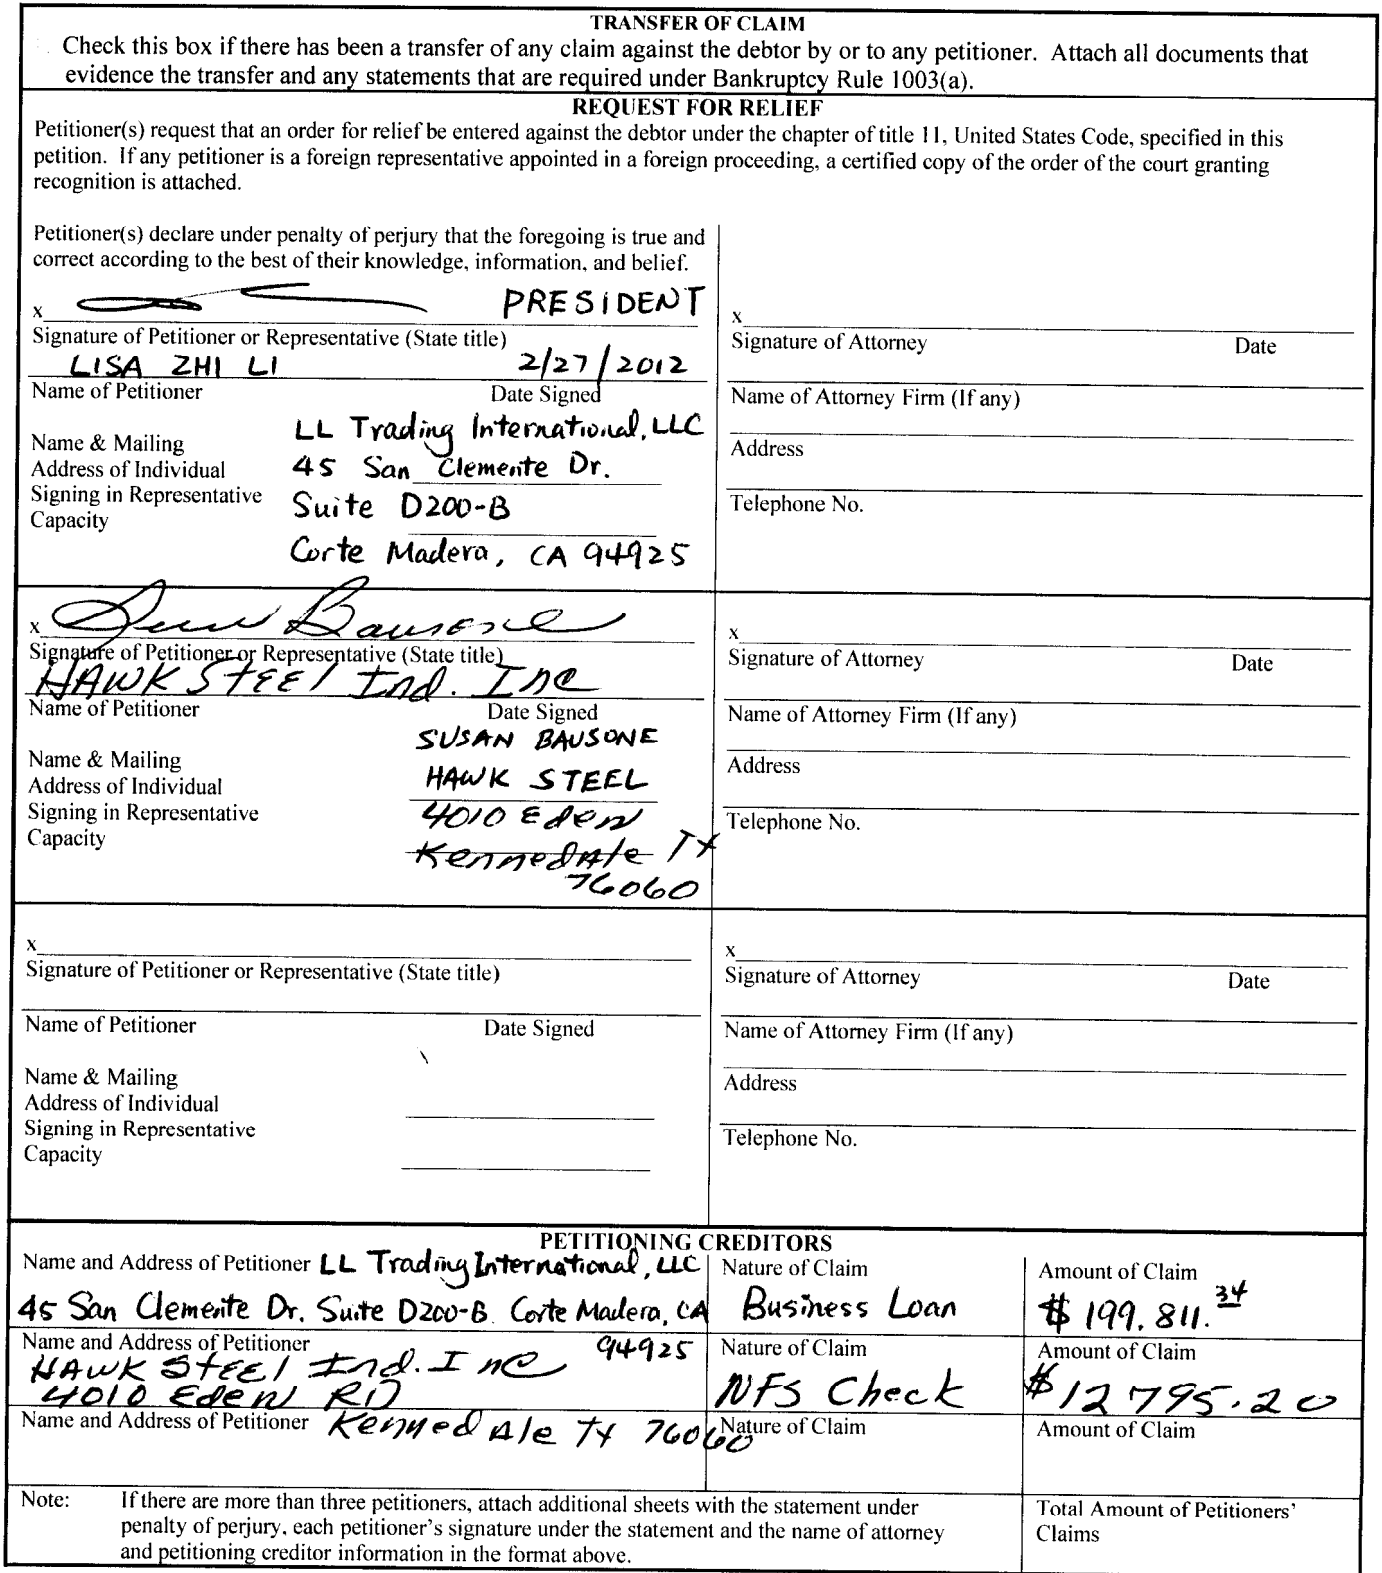 TRANSFER OF CLAIM
Check this box if there has been a transfer of any claim against the debtor by or to any petitioner. Attach all documents that
evidence the transfer and any statements that are required under Bankruptcy Rule 1003(a).
REQUEST FOR RELIEF
Petitioner(s) request that an order for relief be entered against the debtor under the chapter of title 11, United States Code, specified in this
petition. If any petitioner is a foreign representative appointed in a foreign proceeding, a certified copy of the order of the court granting
recognition is attached.
Petitioner(s) declare under penalty of perjury that the foregoing is true and
correct according to the best of their knowledge, information, and belief.
x PRESIDENT
Signature of Petitioner or Representative (State title)
LISA ZHI LI 2/27/2012
Name of Petitioner Date Signed
Name & Mailing
Address of Individual
Signing in Representative
Capacity
LL Trading International, LLC
45 San Clemente Dr.
Suite D200-B
Corte Madera, CA 94925
x
Signature of Attorney Date
Name of Attorney Firm (If any)
Address
Telephone No.
x Bausone
Signature of Petitioner or Representative (State title)
HAWK STEEl Ind. Inc
Name of Petitioner Date Signed
Name & Mailing
Address of Individual
Signing in Representative
Capacity
SUSAN BAUSONE
HAWK STEEL
4010 Eden
KennedAle TX
76060
x
Signature of Attorney Date
Name of Attorney Firm (If any)
Address
Telephone No.
x
Signature of Petitioner or Representative (State title)
Name of Petitioner Date Signed
Name & Mailing
Address of Individual
Signing in Representative
Capacity
x
Signature of Attorney Date
Name of Attorney Firm (If any)
Address
Telephone No.
PETITIONING CREDITORS
Name and Address of Petitioner LL Trading International, LLC
45 San Clemente Dr. Suite D200-B Corte Madera, CA
94925
Nature of Claim
Business Loan
Amount of Claim
$ 199,811.34
Name and Address of Petitioner
HAWK STEEl Ind. Inc
4010 Eden RD
Kennedale TX 76060
Nature of Claim
NFS Check
Amount of Claim
$12795.20
Name and Address of Petitioner
Nature of Claim
Amount of Claim
Note: If there are more than three petitioners, attach additional sheets with the statement under
penalty of perjury, each petitioner's signature under the statement and the name of attorney
and petitioning creditor information in the format above.
Total Amount of Petitioners'
Claims